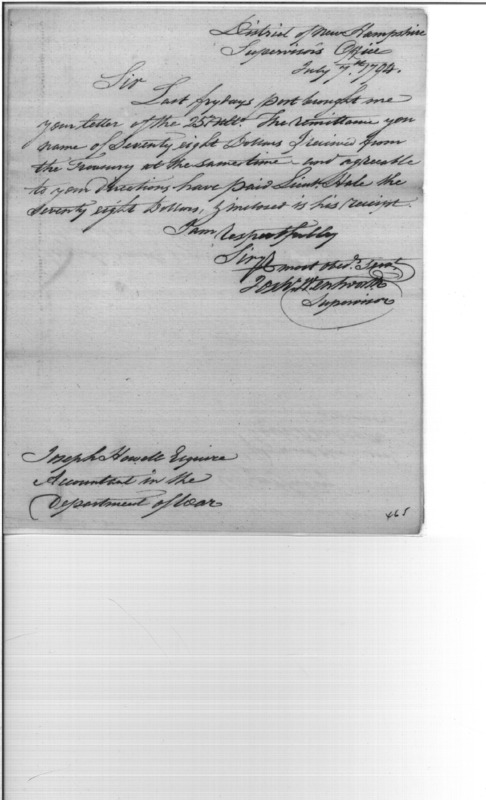 District of New Hampshire
Supervisor's Office
July 7th 1794.
Sir
Last frydays post brought me
your letter of the 25th Ult. The remittance you
name of Seventy eight Dollars I received from
the Treasury at the same time and agreeable
to your directions have paid Lieut. Hale the
seventy eight Dollars, & inclosed is his receipt.
I am respectfully
Sir
most obedt. Servt.
Josh. Wentworth
Supervisor
Joseph Howell Esquire
Accountant in the
Department of War
465